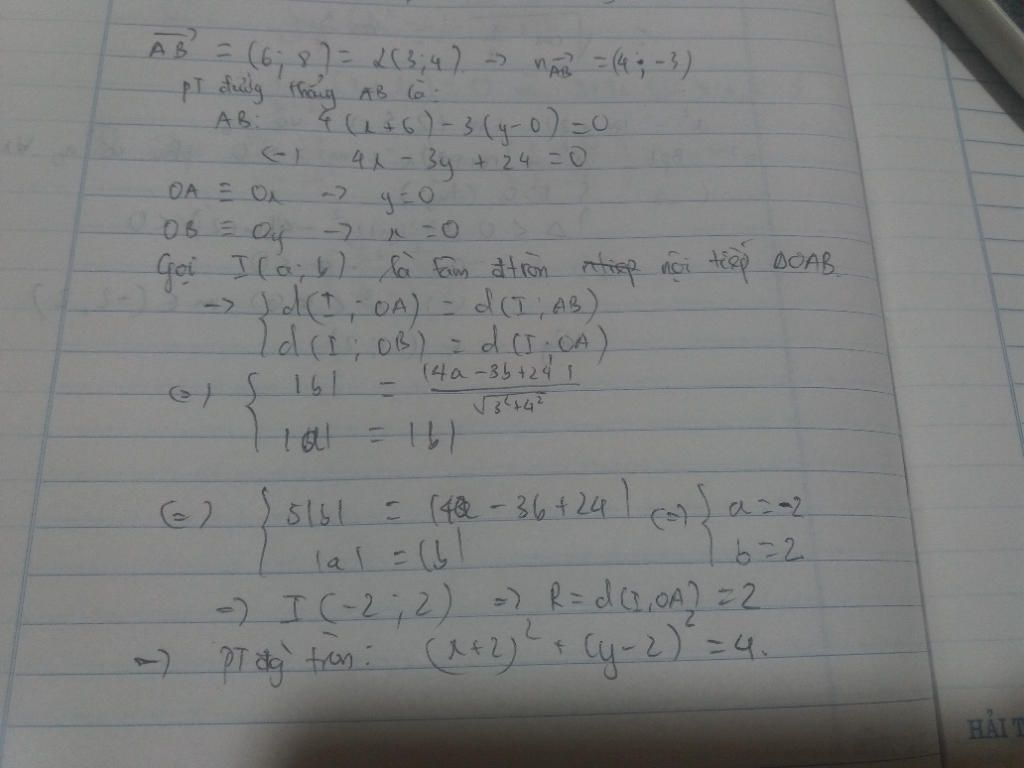 AB→ = (6; 8) = 2(3; 4) → n→AB = (4; -3)
PT đường thẳng AB là:
AB: 4(x+6) - 3(y-0) = 0
(=) 4x - 3y + 24 = 0
OA ≡ Ox → y=0
OB ≡ Oy → x=0
Gọi I(a; b) là tâm đtròn nội tiếp ΔOAB
→ { d(I; OA) = d(I; AB)
d(I; OB) = d(I; OA)
(=) { |b| = |4a - 3b + 24| / √3²+4²
|a| = |b|
(=) { 5|b| = |4a - 3b + 24| (=) { a = -2
|a| = |b| b = 2
=) I(-2; 2) =) R = d(I, OA) = 2
=) PT đg tròn: (x+2)² + (y-2)² = 4.
HẢI T